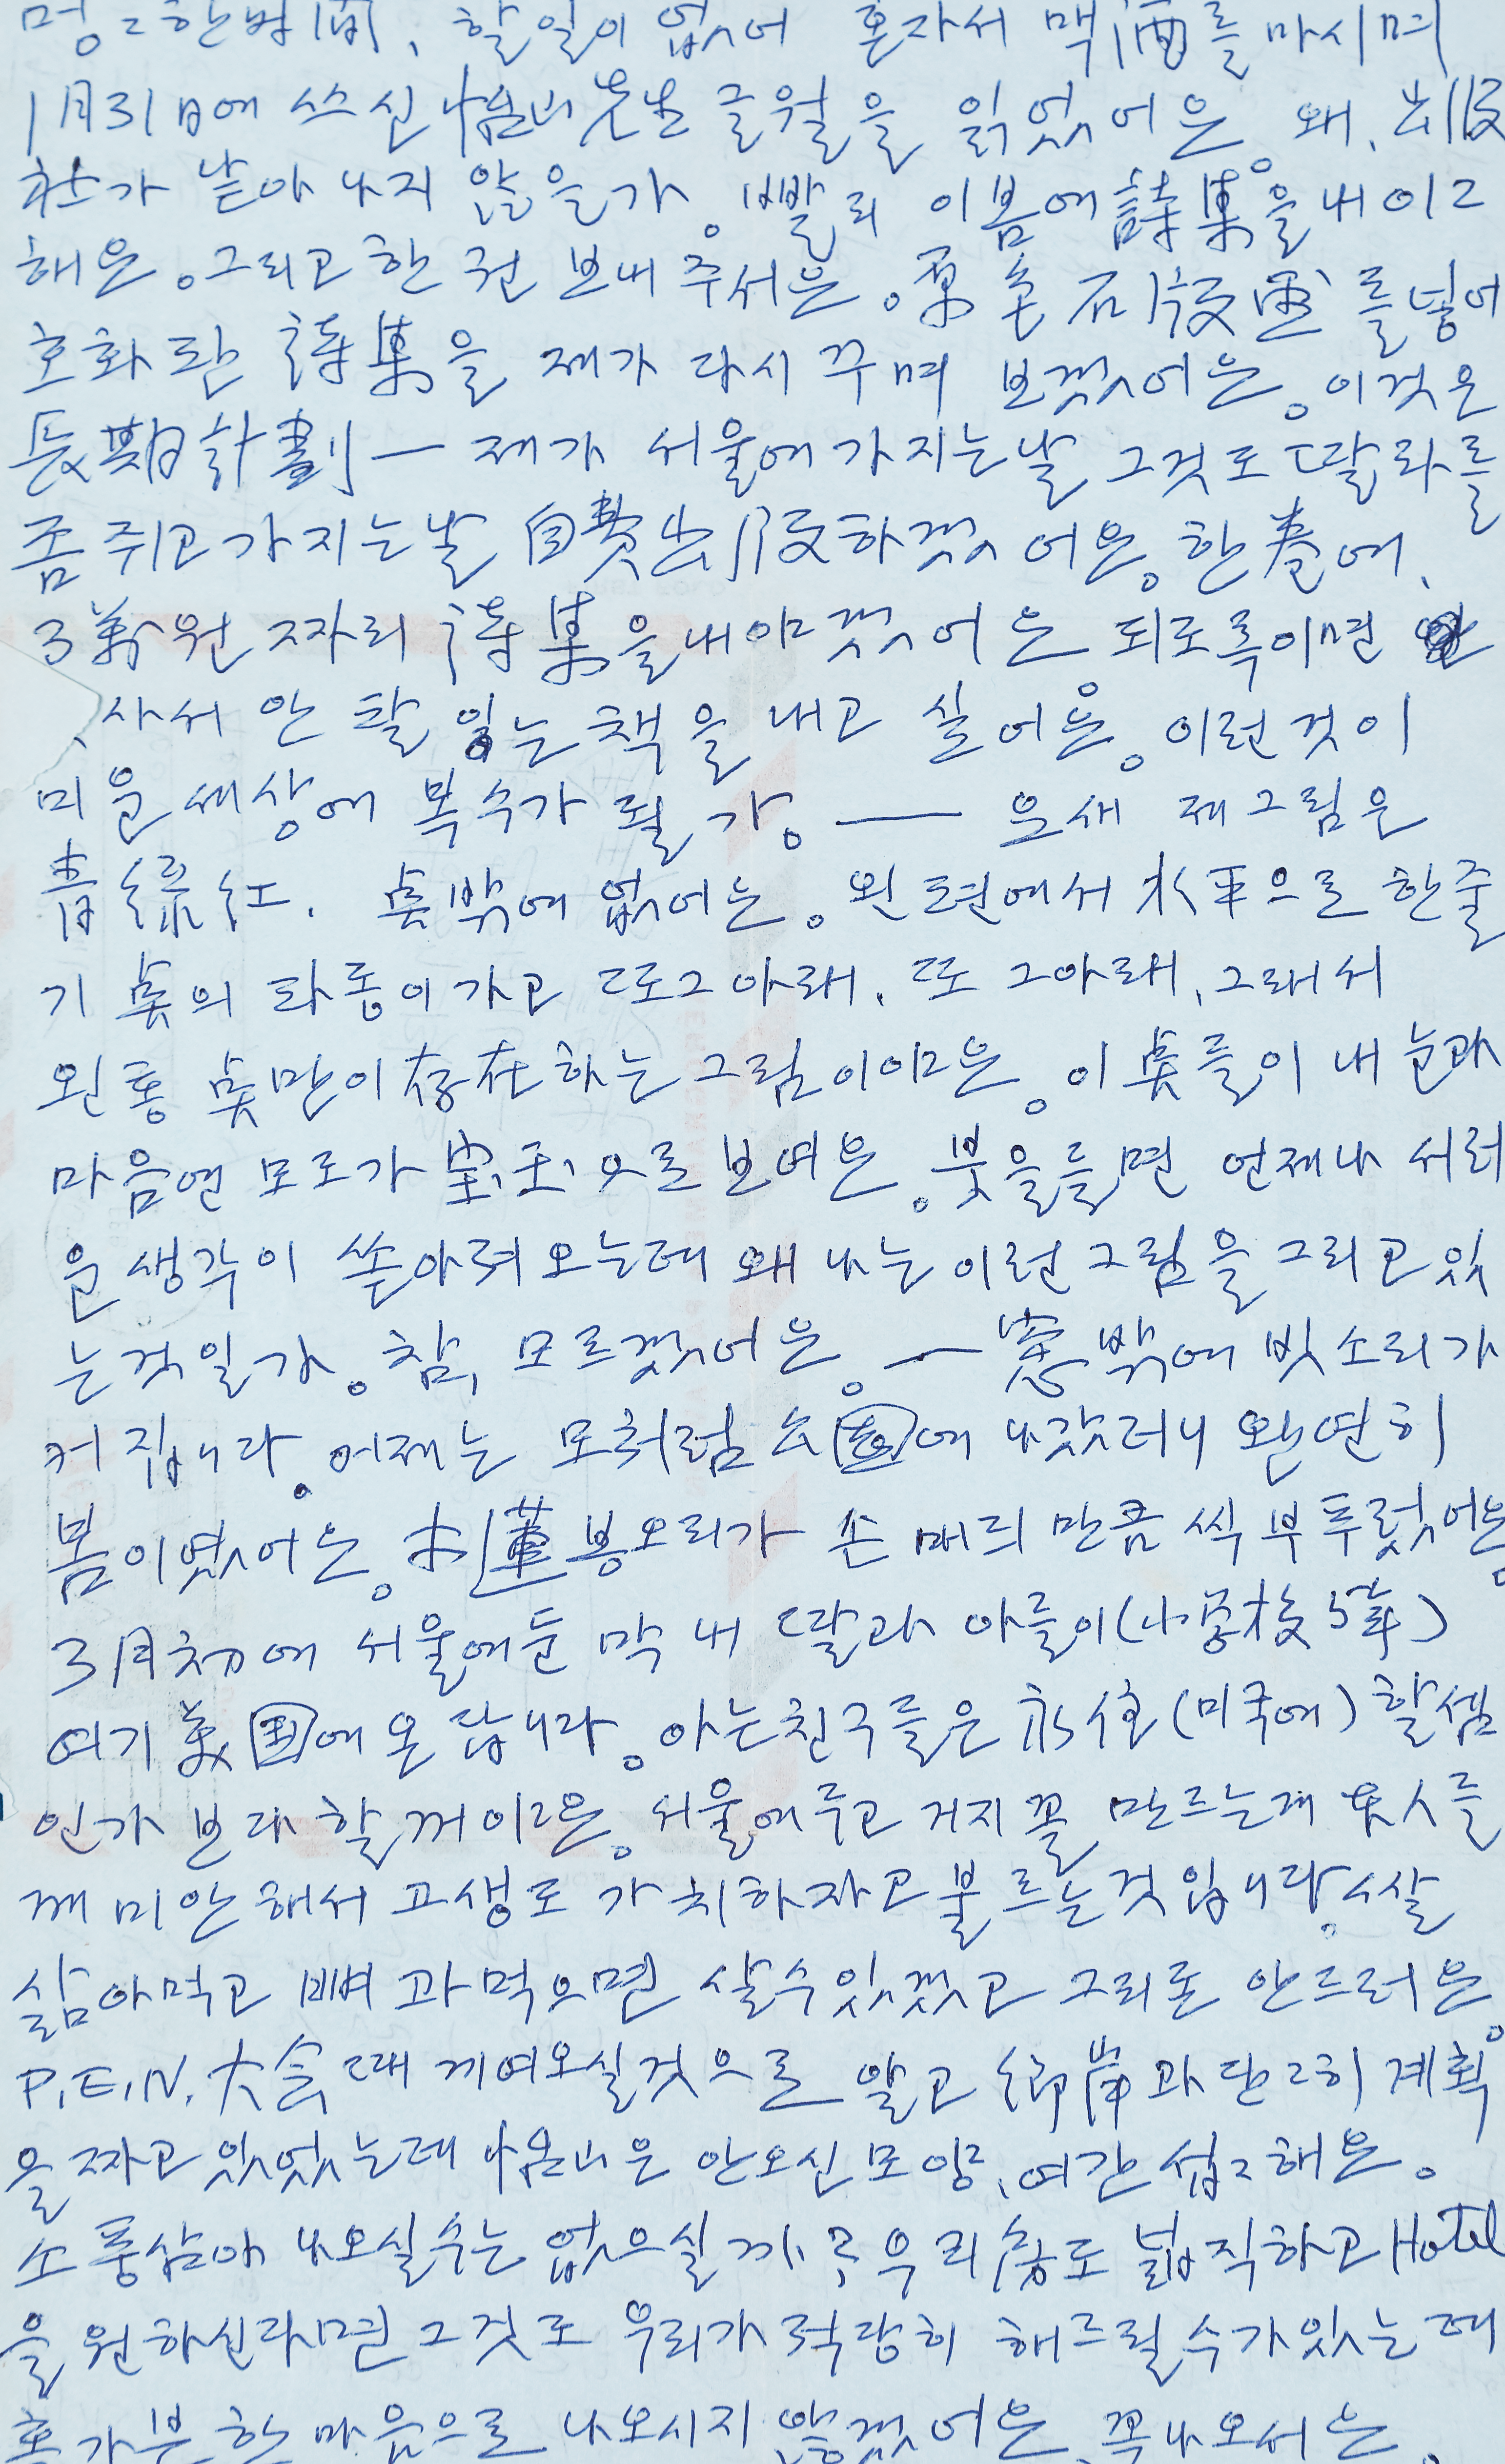 멍ㄷ한 밤 [間], 할일이 없어 혼자서 맥酒를 마시며
1月31日에 쓰신 怡山先生 글월을 읽었어은. 왜, 出版
社가 낱아나지 않을가. 빨리 이봄에 詩集을 내이고
해은. 그리고 한권 보내 주서은. 原色石版画를 넣어
호화판 詩集을 제가 다시 꾸며 보겠어은. 이것은
長期計劃 — 제가 서울에 가지는날 그것도 딸라를
좀 쥐고 가지는날 自費出版하겠어은. 한 卷에,
3萬원 짜리 詩集을 내야겠어은 되도록이면
사서 안 팔 있는 책을 내고 싶어은. 이런 것이
미운 세상에 복수가 될가. — 요새 제그림은
青綠紅. 点밖에 없어은. 왼편에서 水平으로 한줄
기 点의 파동이 가고 또 그 아래, 또 그아래, 그래서
왼통 点만이 存在하는 그림이야은. 이 点들이 내 눈과
마음엔 모도가 宝玉으로 보여은. 붓을들면 언제나 서러
운 생각이 쏟아져 오는데 왜 나는 이런 그림을 그리고 있
는 것일가. 참, 모르겠어은. — 窓밖에 빗소리가
커집니다. 어제는 모처럼 公園에 나갔러니 완연히
봄이였어은. 木蓮 봉오리가 손 매듸 만큼 씩 부푸렀어은.
3月初에 서울에둔 막내 딸과 아들이 (小學校 5年)
여기 美国에 온답니다. 아는친구들은 永住 (미국에) 할셈
인가 보다 할꺼이고은. 서울에 두고 거지꼴 만드는게 東人들
께 미안해서 고생도 가치하자고 불르는것입니다. 쌀
삶아먹고 뼈 과먹으면 살수있겠고 그리돈 안드러은.
P.E.N. 大会 때 끼여오실것으로 알고 鄕岸과 단ㄷ히 계획
을 짜고 있었는데 怡山은 안오신모양, 여간 섭ㄷ해은.
소풍삼아 나오실수는 없으실까? 우리房도 넓직하고 Hotel
을 원하신다면 그것도 우리가 적당히 해드릴수가 있는데
홀가분한 마음으로 나오시지 않겠어은. 꼭 나오서은.